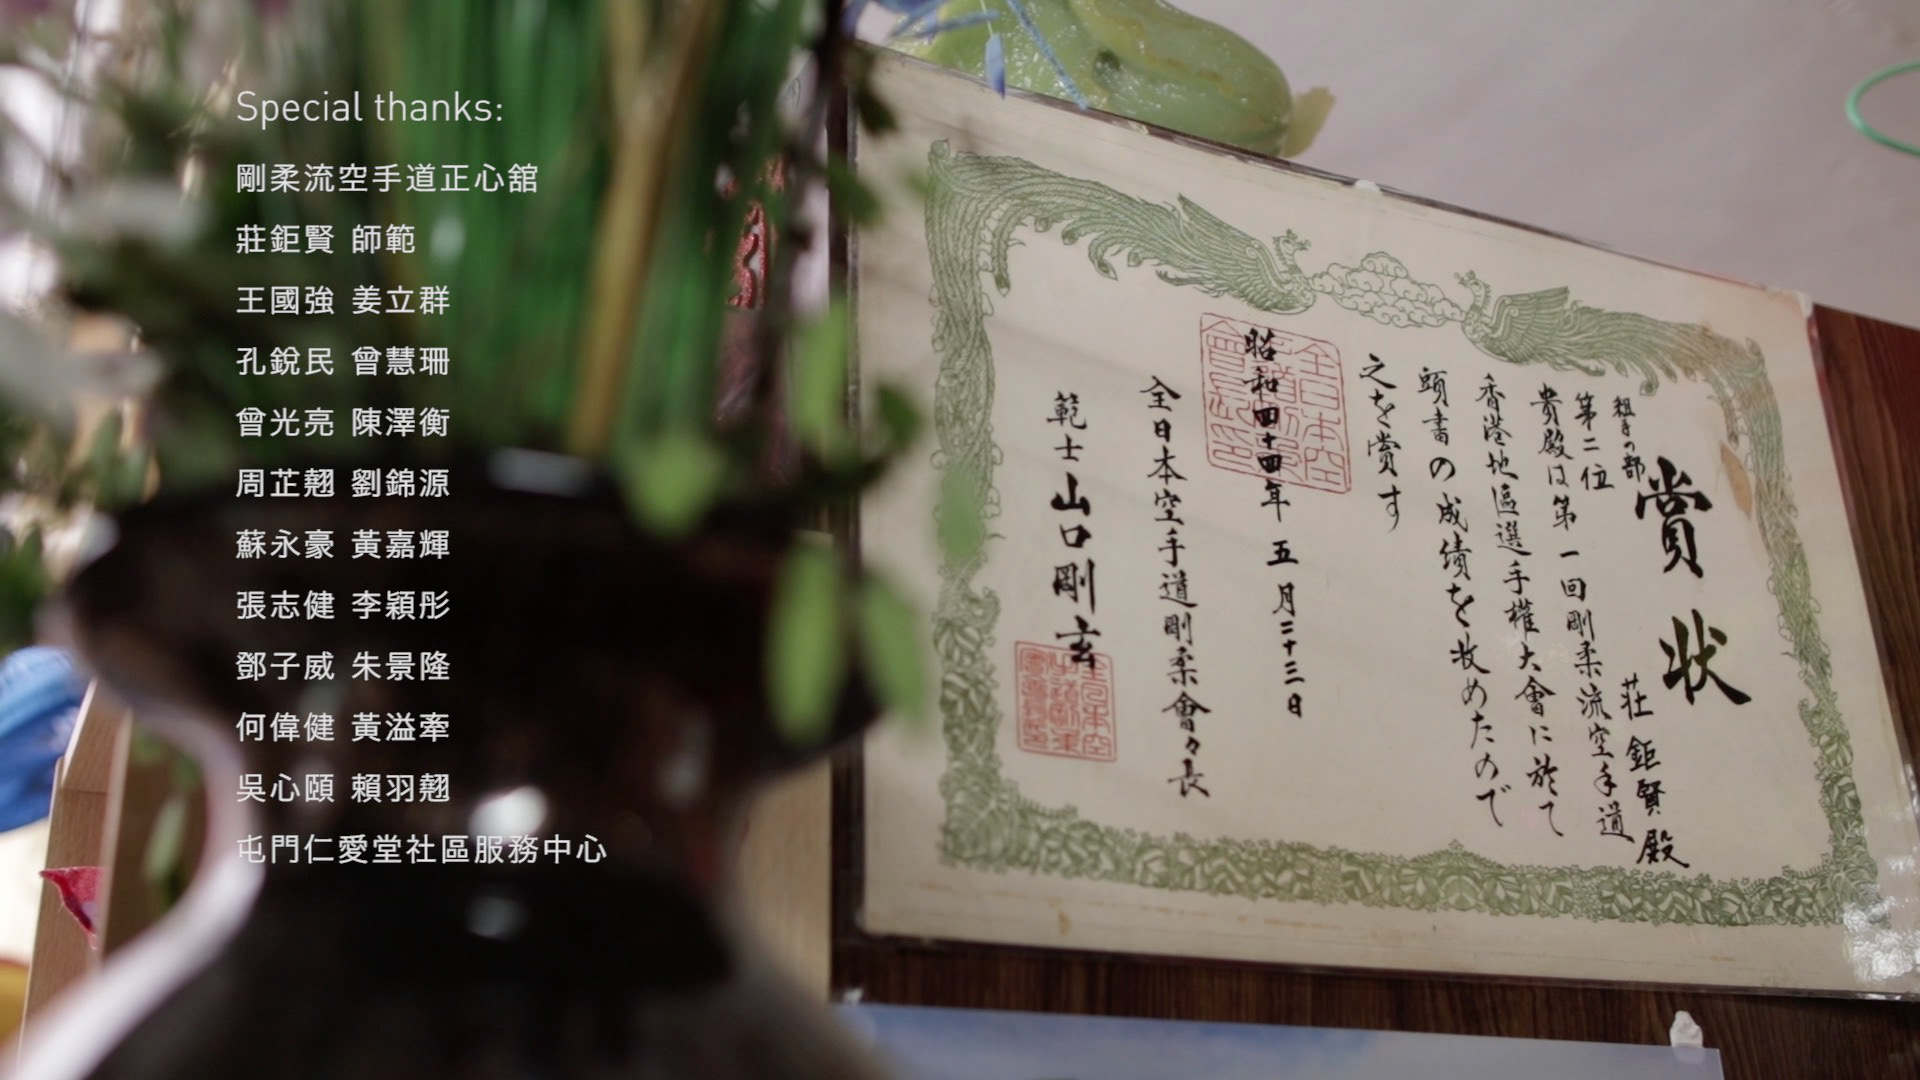 Special thanks:
剛柔流空手道正心舘
莊鉅賢 師範
王國強 姜立群
孔銳民 曾慧珊
曾光亮 陳澤衡
周芷翹 劉錦源
蘇永豪 黃嘉輝
張志健 李穎彤
鄧子威 朱景隆
何偉健 黃溢牽
吳心頤 賴羽翹
屯門仁愛堂社區服務中心
賞状
組手の部
第二位
莊鉅賢殿
貴殿は第一回剛柔流空手道
香港地區選手權大會に於て
頭書の成績を收めたので
之を賞す
昭和四十四年五月二十三日
全日本空手道剛柔會々長
範士山口剛玄